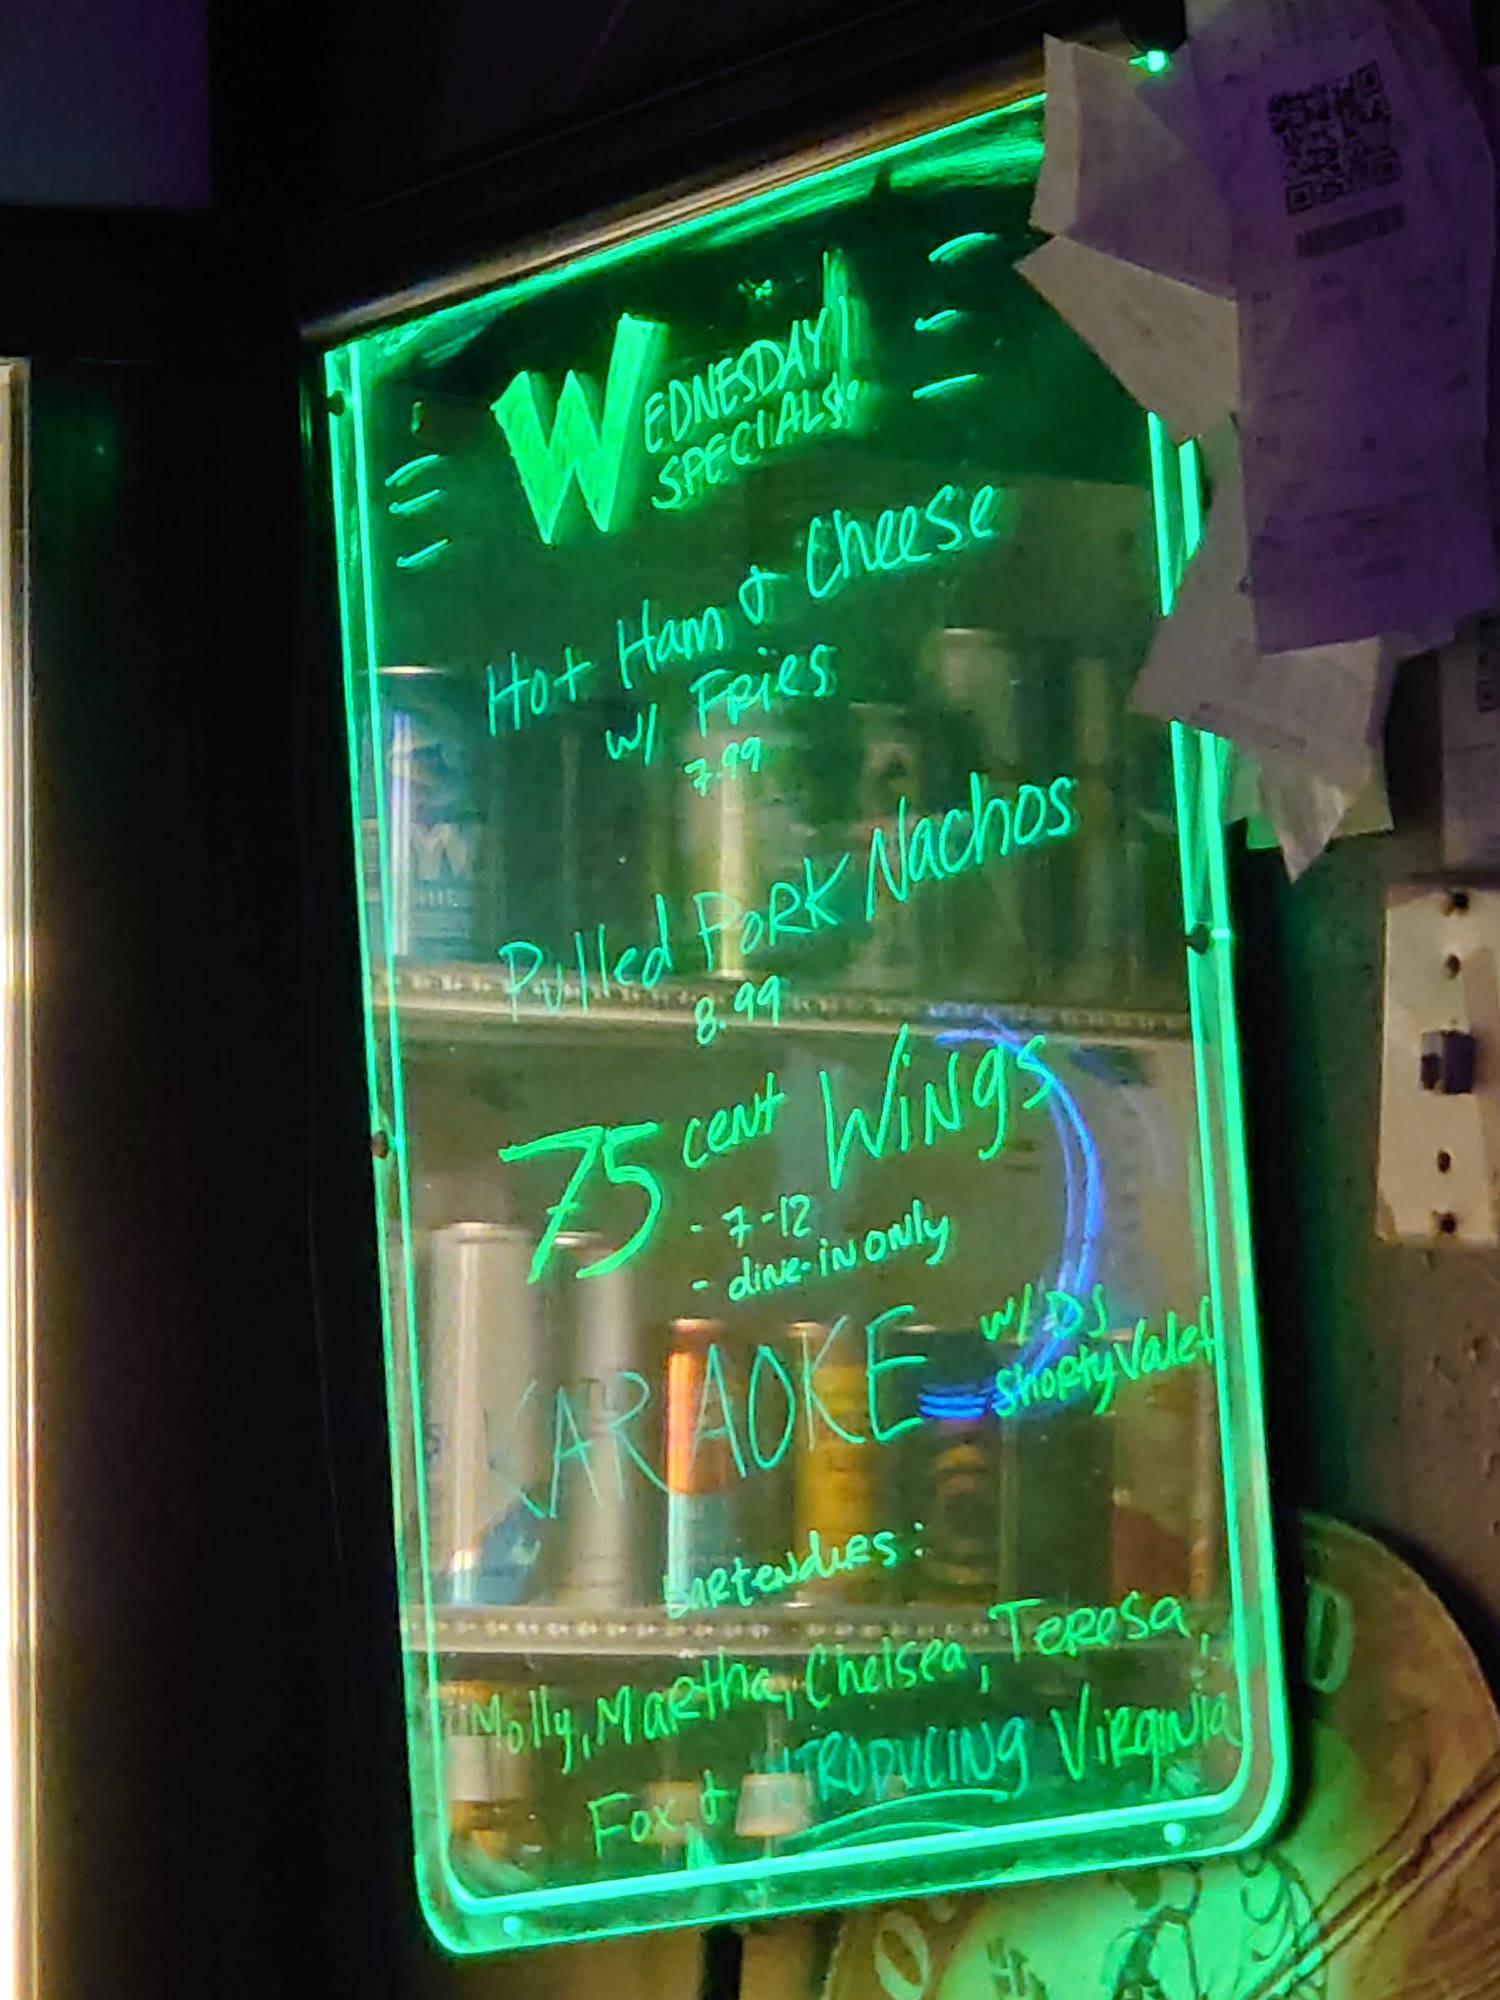 WEDNESDAY
SPECIALS:
Hot Ham & Cheese
w/ Fries
7.99
Pulled Pork Nachos
8.99
75 cent Wings
- 7-12
- dine-in only
KARAOKE w/ DJ
Shorty Valet
bartenders:
Molly, Martha, Chelsea, Teresa,
Fox & INTRODUCING Virginia